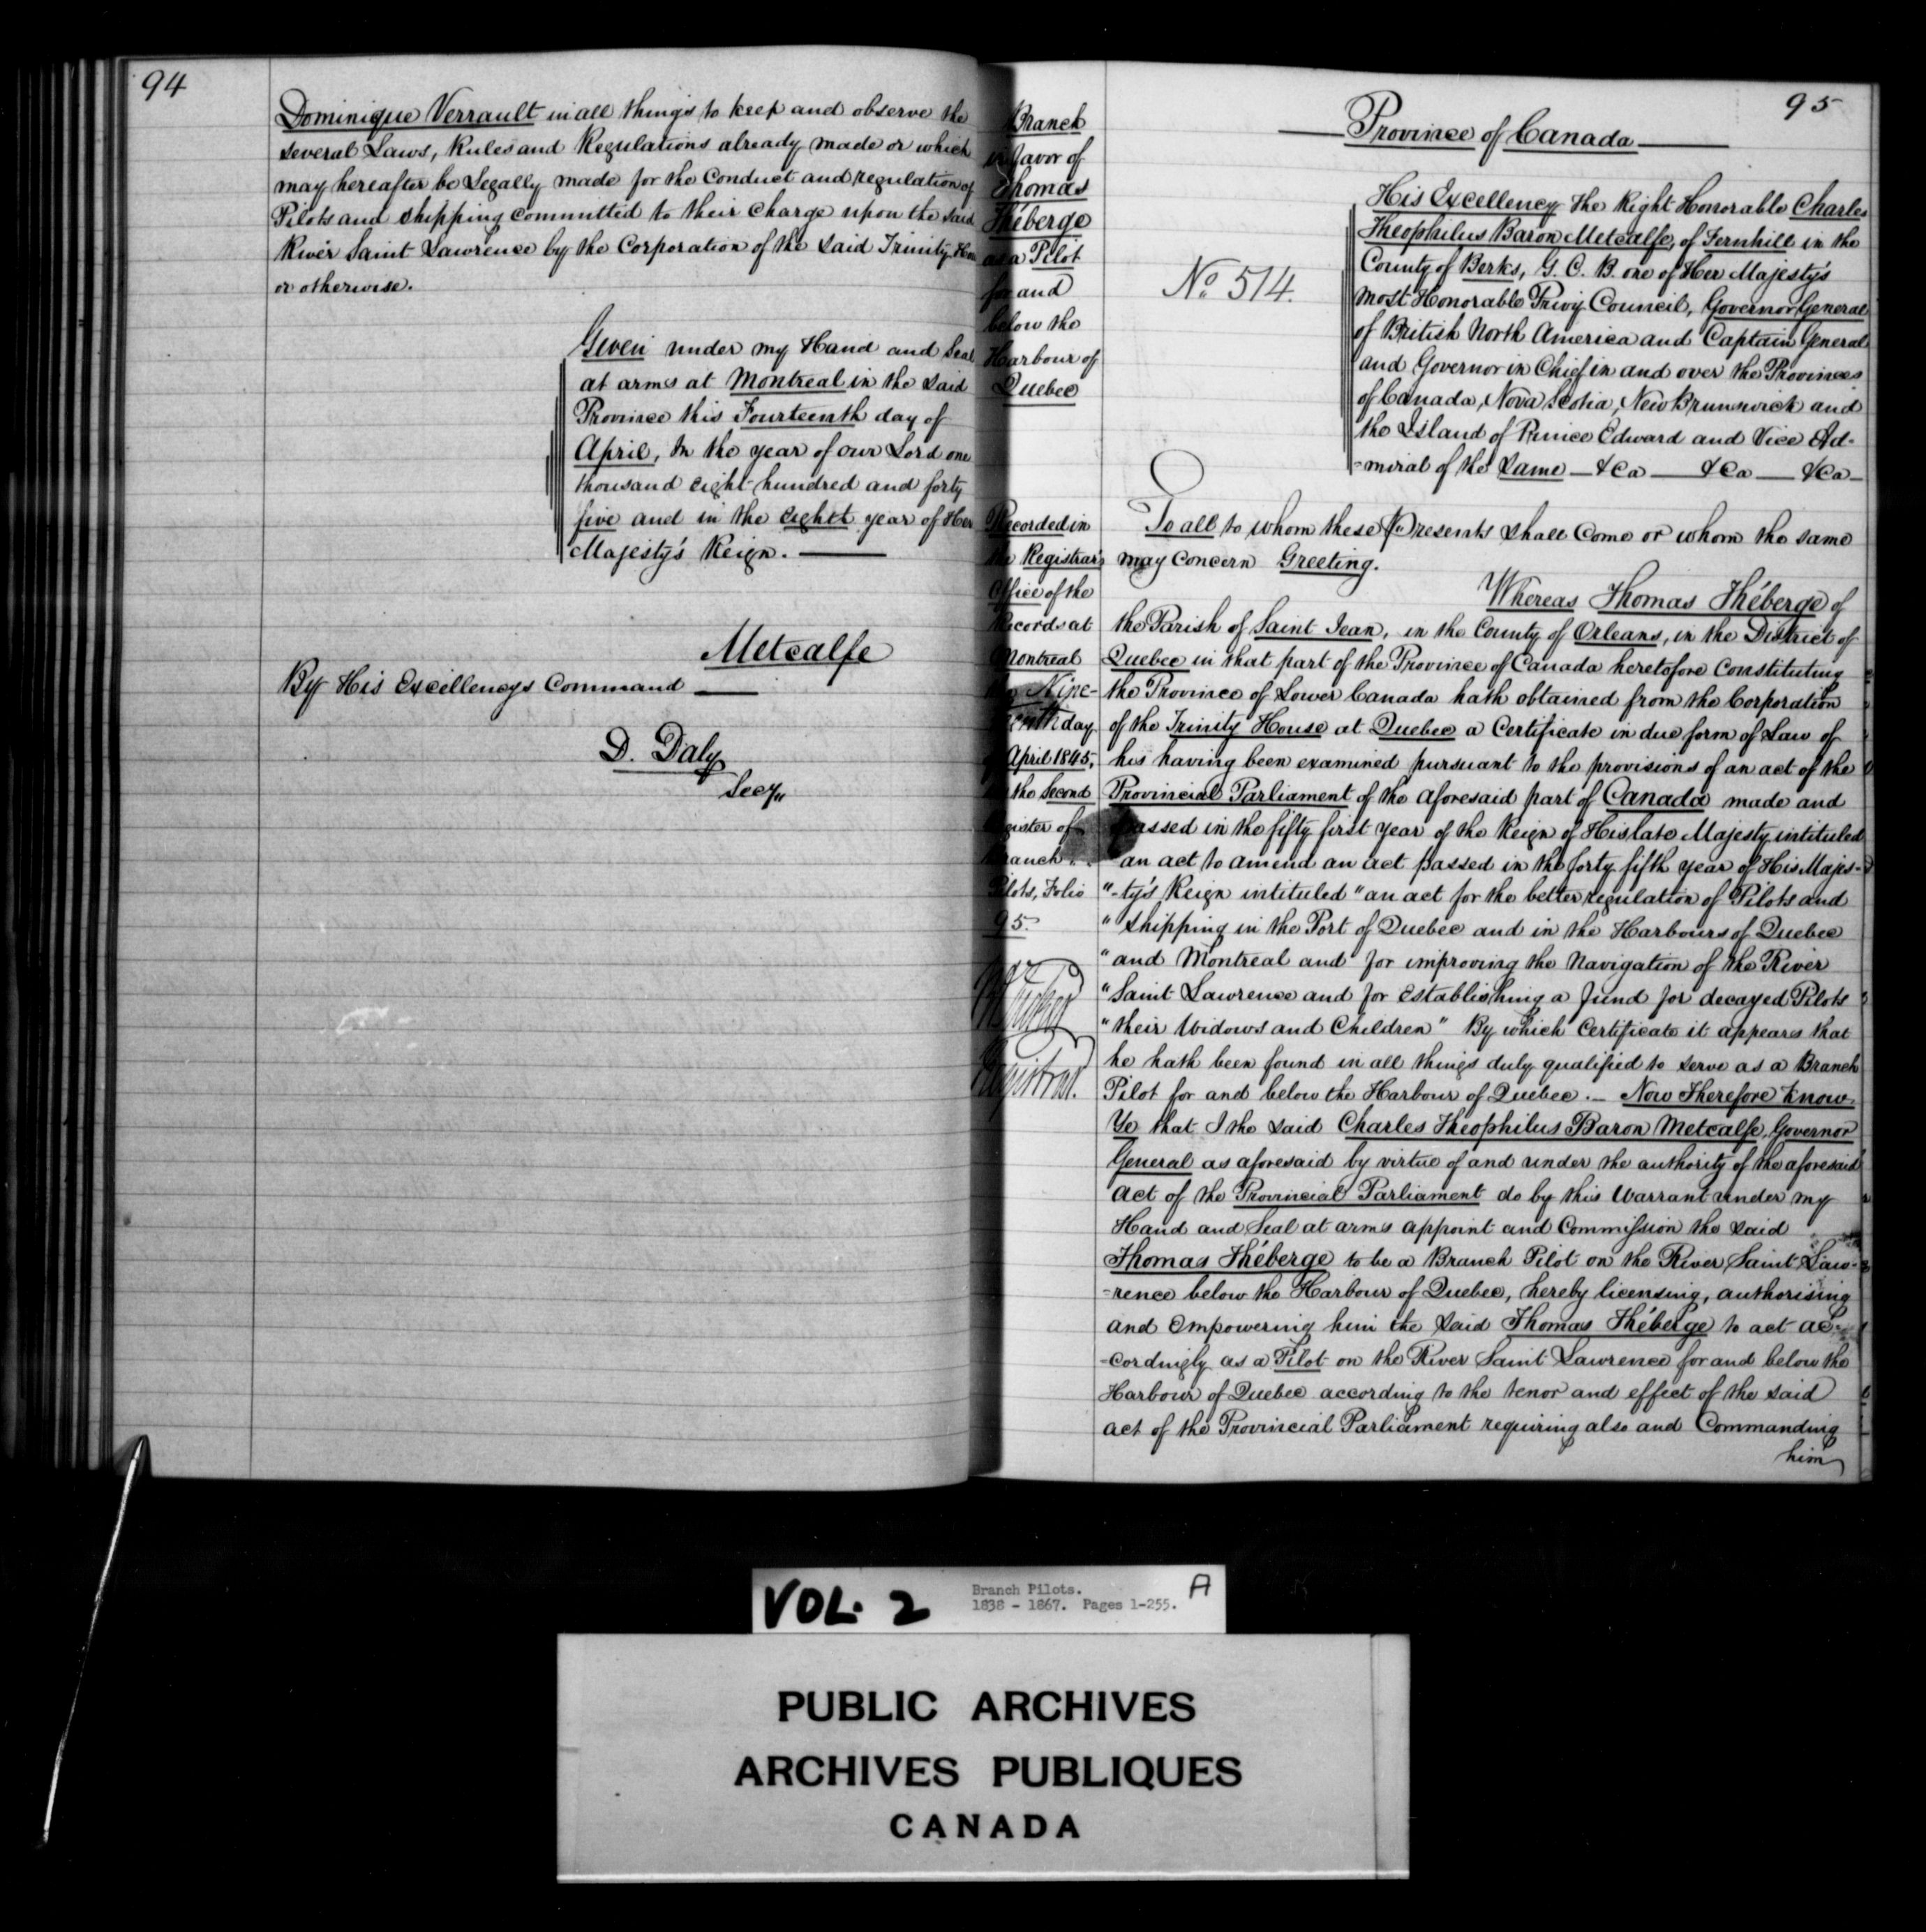 94
Dominique Verrault in all things to keep and observe the
several Laws, Rules and Regulations already made or which
may hereafter be Legally made for the Conduct and regulation of
Pilots and Shipping committed to their Charge upon the said
River Saint Lawrence by the Corporation of the said Trinity
or otherwise.
Given under my Hand and Seal
at arms at Montreal in the said
Province this Fourteenth day of
April, In the year of our Lord one
thousand eight hundred and forty
five and in the eight year of Her
Majesty's Reign.
Metcalfe
By His Excellencys Command
D. Daly
Secy
95
Branch
in favor of
Thomas
Théberge
as a Pilot
for and
below the
Harbour of
Quebec
Recorded in
the Registrar's
Office of the
Records at
Montreal
Nine-
teenth day
April 1845,
the Second
Register of
Branch
Pilots, Folio
95.
Registrar.
Province of Canada
No. 514.
His Excellency the Right Honorable Charles
Theophilus Baron Metcalfe, of Fernhill in the
County of Berks, G. C. B. one of Her Majesty's
most Honorable Privy Council, Governor General
of British North America and Captain General
and Governor in Chief in and over the Provinces
of Canada, Nova Scotia, New Brunswick and
the Island of Prince Edward and Vice Ad-
=miral of the Same — &Ca — &Ca — &Ca —
To all to whom these Presents shall Come or whom the same
may Concern Greeting.
Whereas Thomas Théberge of
the Parish of Saint Jean, in the County of Orleans, in the District of
Quebec in that part of the Province of Canada heretofore Constituting
the Province of Lower Canada hath obtained from the Corporation
of the Trinity House at Quebec a Certificate in due form of Law of
his having been examined pursuant to the provisions of an act of the
Provincial Parliament of the aforesaid part of Canada made and
passed in the fifty first year of the Reign of His late Majesty intituled
an act to amend an act passed in the forty fifth year of His Majes-
"-ty's Reign intituled "an act for the better regulation of Pilots and
" Shipping in the Port of Quebec and in the Harbours of Quebec
" and Montreal and for improving the Navigation of the River
" Saint Lawrence and for establishing a fund for decayed Pilots
" their Widows and Children" By which Certificate it appears that
he hath been found in all things duly qualified to serve as a Branch
Pilot for and below the Harbour of Quebec. — Now Therefore Know
Ye that I the said Charles Theophilus Baron Metcalfe, Governor
General as aforesaid by virtue of and under the authority of the aforesaid
Act of the Provincial Parliament do by this Warrant under my
Hand and Seal at arms appoint and Commission the said
Thomas Théberge to be a Branch Pilot on the River Saint Law-
=rence below the Harbour of Quebec, hereby licensing, authorising
and Empowering him the said Thomas Théberge to act ac-
=cordingly as a Pilot on the River Saint Lawrence for and below the
Harbour of Quebec according to the tenor and effect of the said
act of the Provincial Parliament requiring also and Commanding
him
VOL. 2
Branch Pilots.
1838 - 1867. Pages 1-255.
A
PUBLIC ARCHIVES
ARCHIVES PUBLIQUES
CANADA